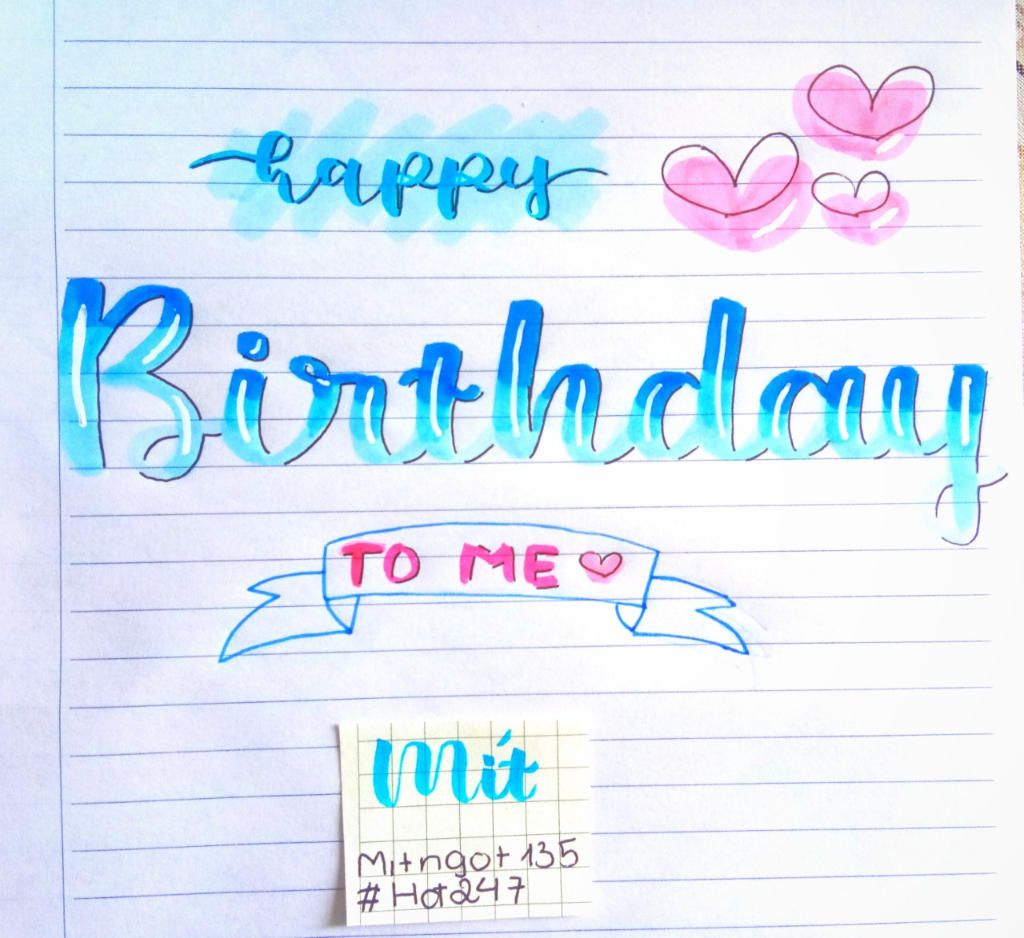 happy
Birthday
TO ME
Mít
Mitngot135
#Hot247